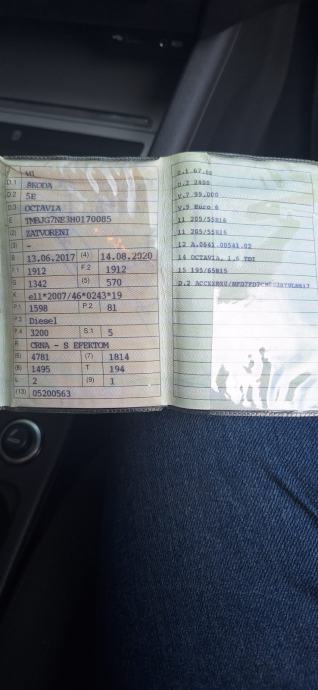 M1
D.1 ŠKODA
D.2 5E
D.3 OCTAVIA
E TMBJG7NE3H0170085
(2) ZATVORENI
(3) -
B 13.06.2017 (4) 14.08.2020
F.1 1912 F.2 1912
G 1342 (5) 570
K e11*2007/46*0243*19
P.1 1598 P.2 81
P.3 Diesel
P.4 3200 S.1 5
R CRNA - S EFEKTOM
(6) 4781 (7) 1814
(8) 1495 T 194
L 2 (9) 1
(13) 05200563
U.1 67.00
U.2 2400
V.7 99.000
V.9 Euro 6
11 205/55R16
11 205/55R16
12 A.0641.00541.02
14 OCTAVIA, 1,6 TDI
15 195/65R15
D.2